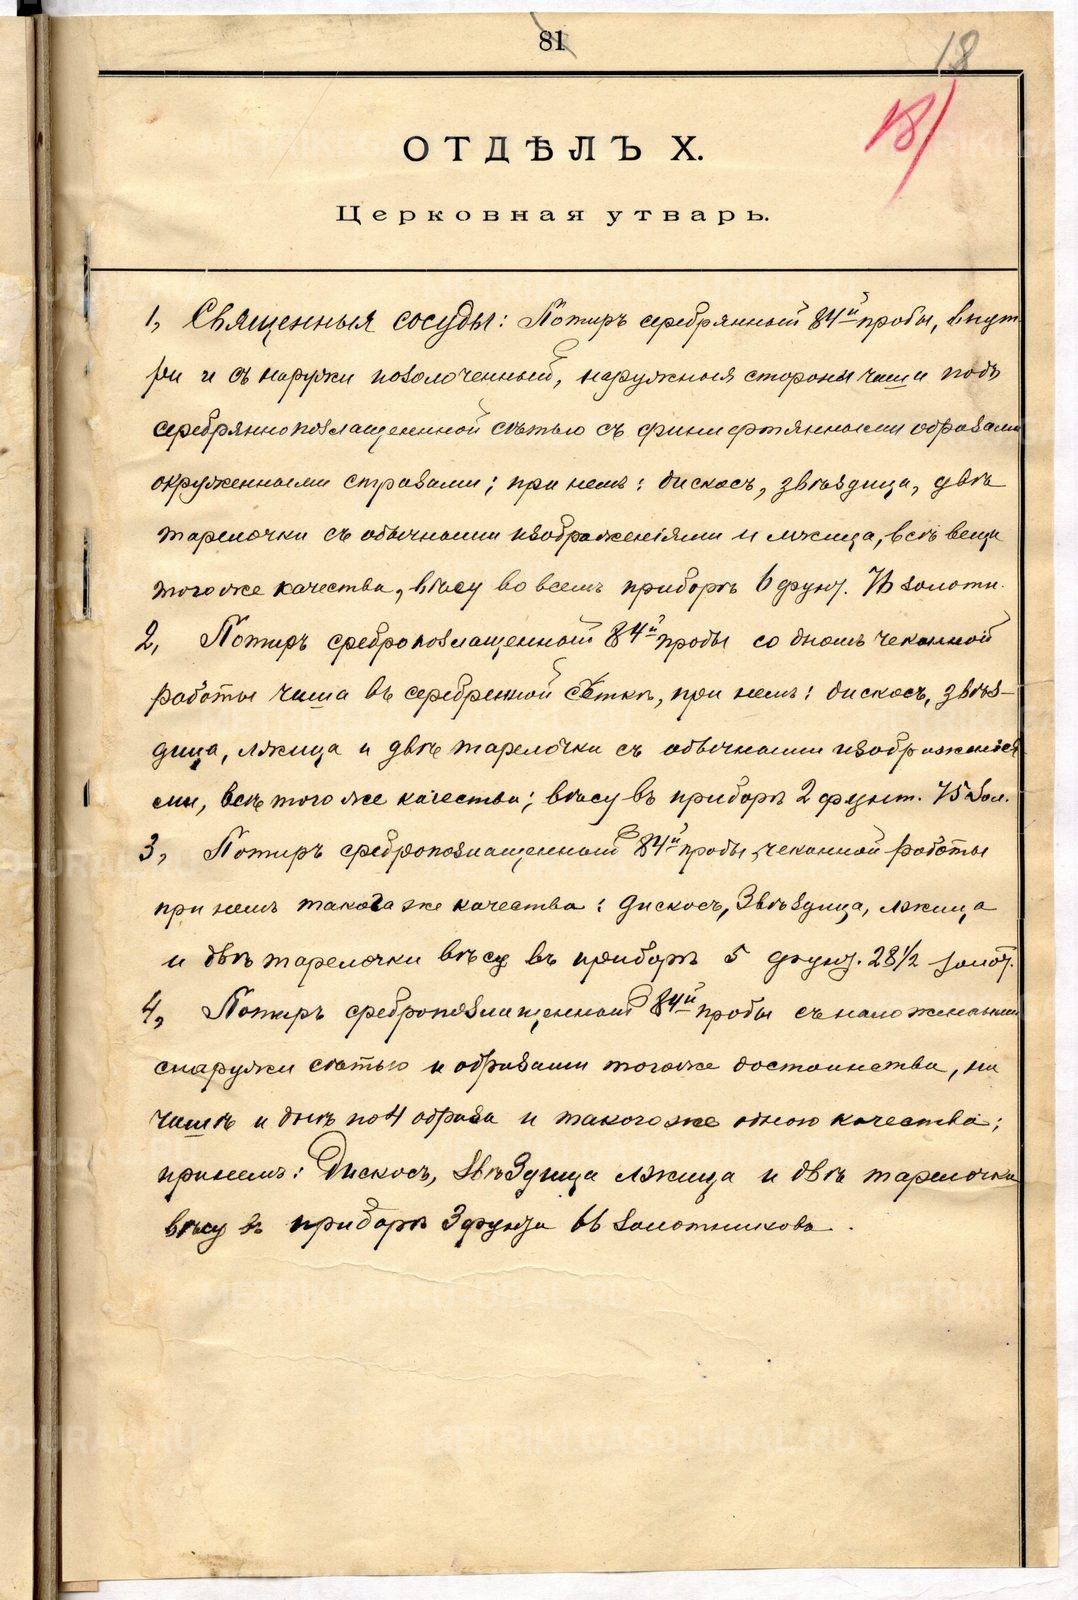 81
18
18
ОТДѢЛЪ X.
Церковная утварь.
1, Священныя сосуды: Потиръ серебрянный 84й пробы, внут
ри и съ наружи позолоченный, наружныя стороны чаши подъ
серебряннопозлащененной сѣтью съ финифтянными образами
окруженными стразами; при немъ: дискосъ, звѣздица, двѣ
тарелочки съ обычными изображеніями и лжица, всѣ вещи
тогоже качества, вѣсу во всемъ приборѣ 6 фунт. золотн.
2, Потиръ сребропозлащенный 84й пробы со дномъ чеканной
работы чаша въ серебренной сѣткѣ, при немъ: дискосъ, звѣз-
дица, лжица и двѣ тарелочки съ обычными изображенія
ми, всѣ того же качества; вѣсу въ приборѣ 2 фунт. 75 зол.
3, Потиръ сребропозлащенный 84й пробы, чеканной работы
при немъ такога же качества: дискосъ, звѣздица, лжица
и двѣ тарелочки вѣсу въ приборѣ 5 фунт. 28 1/2 золот.
4, Потиръ сребропозлащенный 84й пробы съ наложенными
снаружи сѣтью и образами тогоже достоинства, на
чашѣ и днѣ по 4 образа и такого же одного качества;
при немъ: Дискосъ, звѣздица лжица и двѣ тарелочки
вѣсу въ приборѣ 3 фунта 66 золотниковъ.
METRIKI.GASO-URAL.RU
METRIKI.GASO-URAL.RU